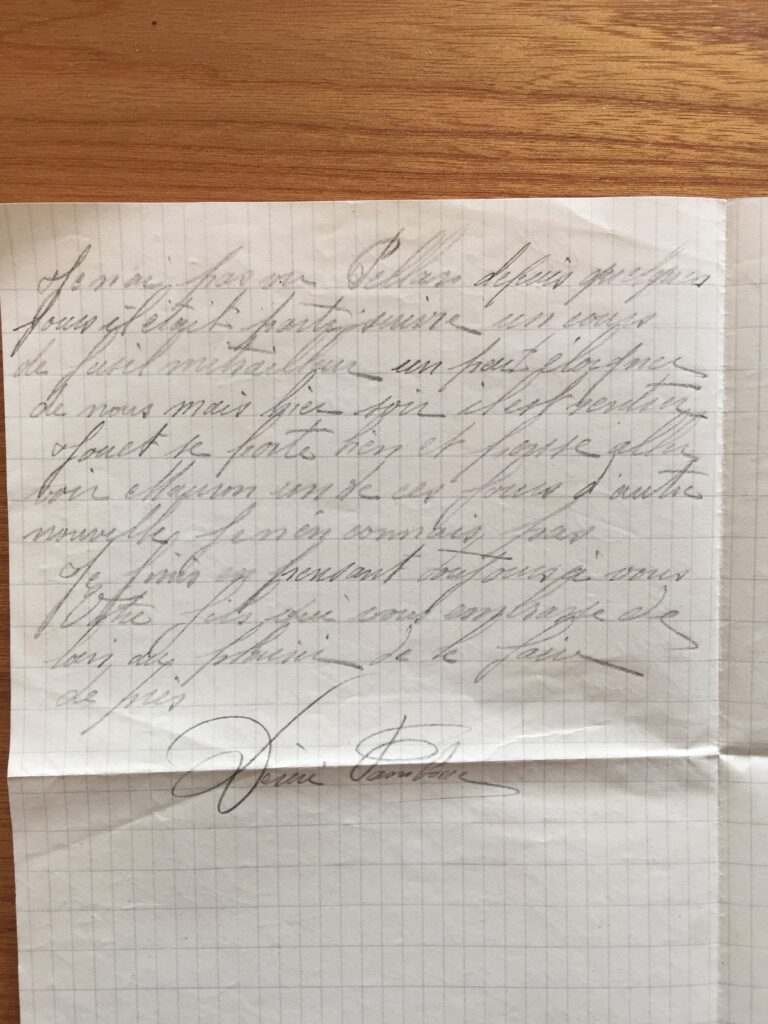 Je nai pas vu Pellan depuis quelques
jours il était parti suivre un cours
de fusil mitrailleur un peut éloigner
de nous mais hier soir il est rentrer
Jouet se porte bien et pense aller
voir Mauron un de ces jours d'autre
nouvelle je n'en connais pas
Je finis en pensant toujours à vous
Votre fils qui vous embrasse de
loin au plaisir de le faire
de près
Désiré